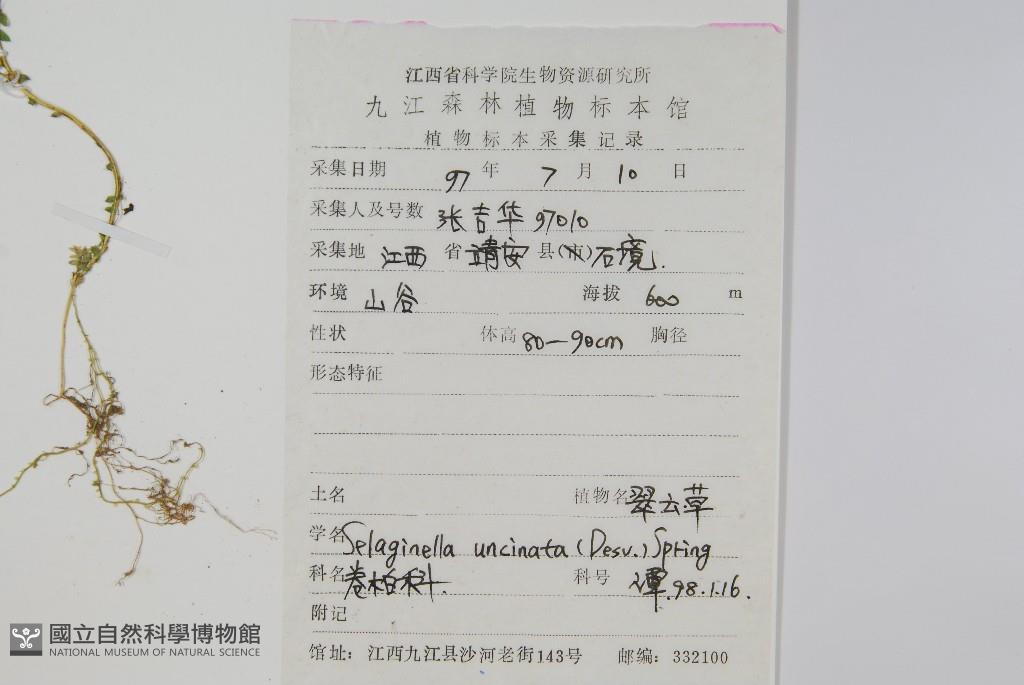 江西省科学院生物资源研究所
九江森林植物标本馆
植物标本采集记录
采集日期 97 年 7 月 10 日
采集人及号数 张吉华 97010
采集地 江西 省 靖安 县(市) 石境.
环境 山谷 海拔 600 m
性状 体高 80—90cm 胸径
形态特征
土名 植物名 翠云草
学名 Selaginella uncinata (Desv.) Spring
科名 卷柏科. 科号 谭.98.1.16.
附记
馆址: 江西九江县沙河老街143号 邮编: 332100
國立自然科學博物館
NATIONAL MUSEUM OF NATURAL SCIENCE